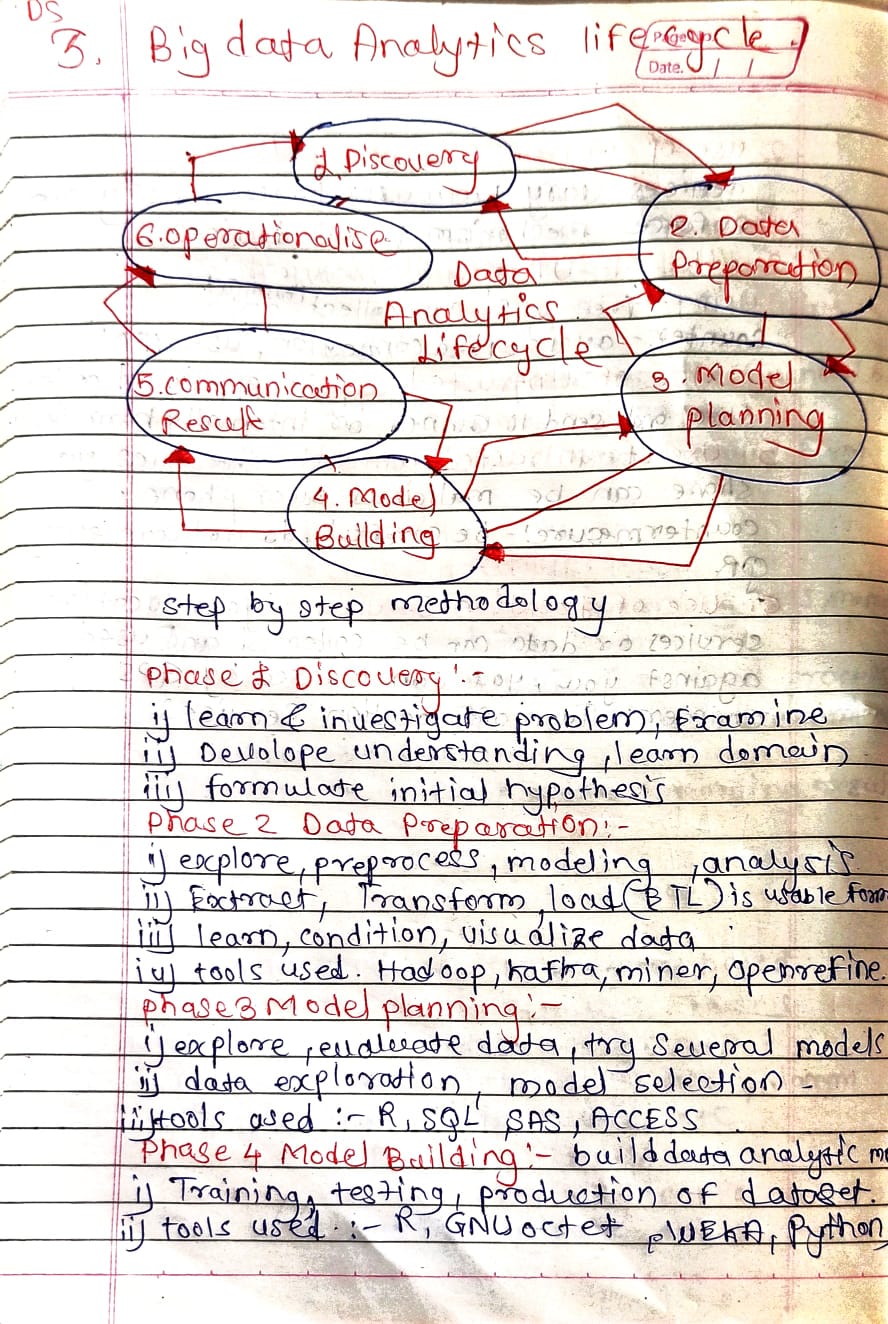 DS
3. Big data Analytics lifecycle.
Date. / /
1. Discovery
6. operationalise
2. Data
Preparation
Data
Analytics
Lifecycle
5. communication
Result
3. Model
planning
4. Model
Building
step by step methodology
Phase 1 Discovery :-
i) learn & investigate problem, Examine
ii) Devolope understanding, learn domain
iii) formulate initial hypothesis
Phase 2 Data Preparation :-
i) explore, preprocess, modeling, analysis
ii) Extract, Transform, load (ETL) is usable form
iii) learn, condition, visualize data
iv) tools used. Hadoop, kafka, miner, Openrefine.
phase 3 Model planning :-
i) explore, evaluate data, try several models
ii) data exploration, model selection -
iii) tools used :- R, SQL SAS, ACCESS
Phase 4 Model Building :- build data analytic mo
i) Training, testing, production of dataset.
ii) tools used :- R, GNU octet, WEKA, Python